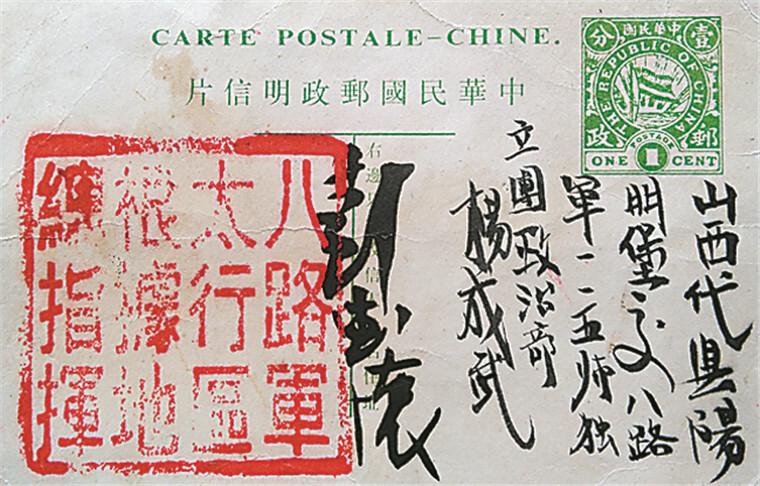 CARTE POSTALE–CHINE.
中華民國郵政明信片
中華民國
壹分
THE REPUBLIC OF CHINA
郵政
POSTAGE
ONE 1 CENT
山西代县陽
明堡交八路
軍一一五师独
立團政治部
楊成武
右邊
彭德怀
八路軍
太行區
根據地
總指揮